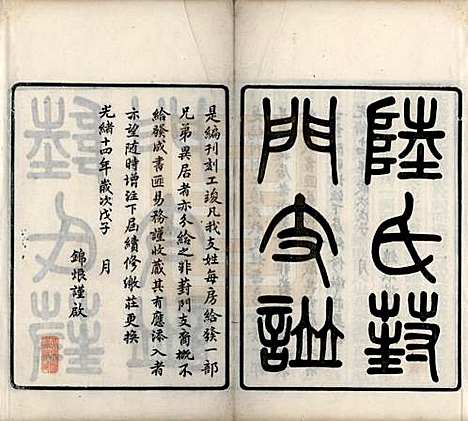 陸氏葑
門支譜
是編刊刻工竣凡我支姓每房給發一部
兄弟異居者亦分給之非葑門支裔概不
給發成書匪易務謹收藏其有應添入者
亦望随時增注下屆續修繳莊更換
光緒十四年歲次戊子 月
錦烺謹啟